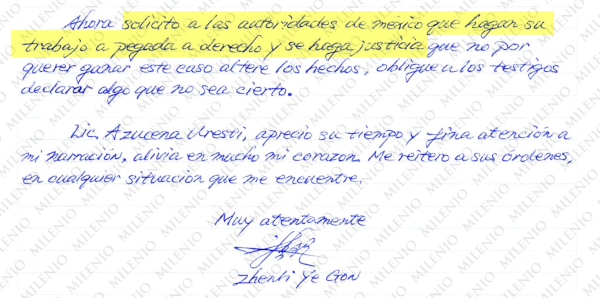 Ahora solicito a las autoridades de mexico que hagan su
trabajo a pegada a derecho y se haga justicia que no por
querer ganar este caso altere los hechos, obligue a los testigos
declarar algo que no sea cierto.
Lic. Azucena Uresti, aprecio su tiempo y fina atención a
mi narración, alivia en mucho mi corazon. Me reitero a sus órdenes,
en cualquier situación que me encuentre.
Muy atentamente
Zhenli Ye Gon
MILENIO